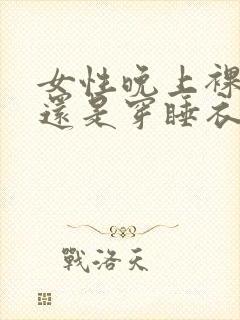 女性晚上裸
還是穿睡衣
戰洛天